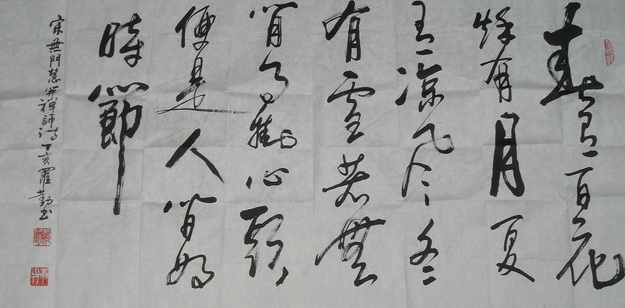 春有百花
秋有月夏
有凉风冬
有雪若無
閒事挂心頭
便是人間好
時節
宋無門慧開禪師詩 丁亥 羅勤书